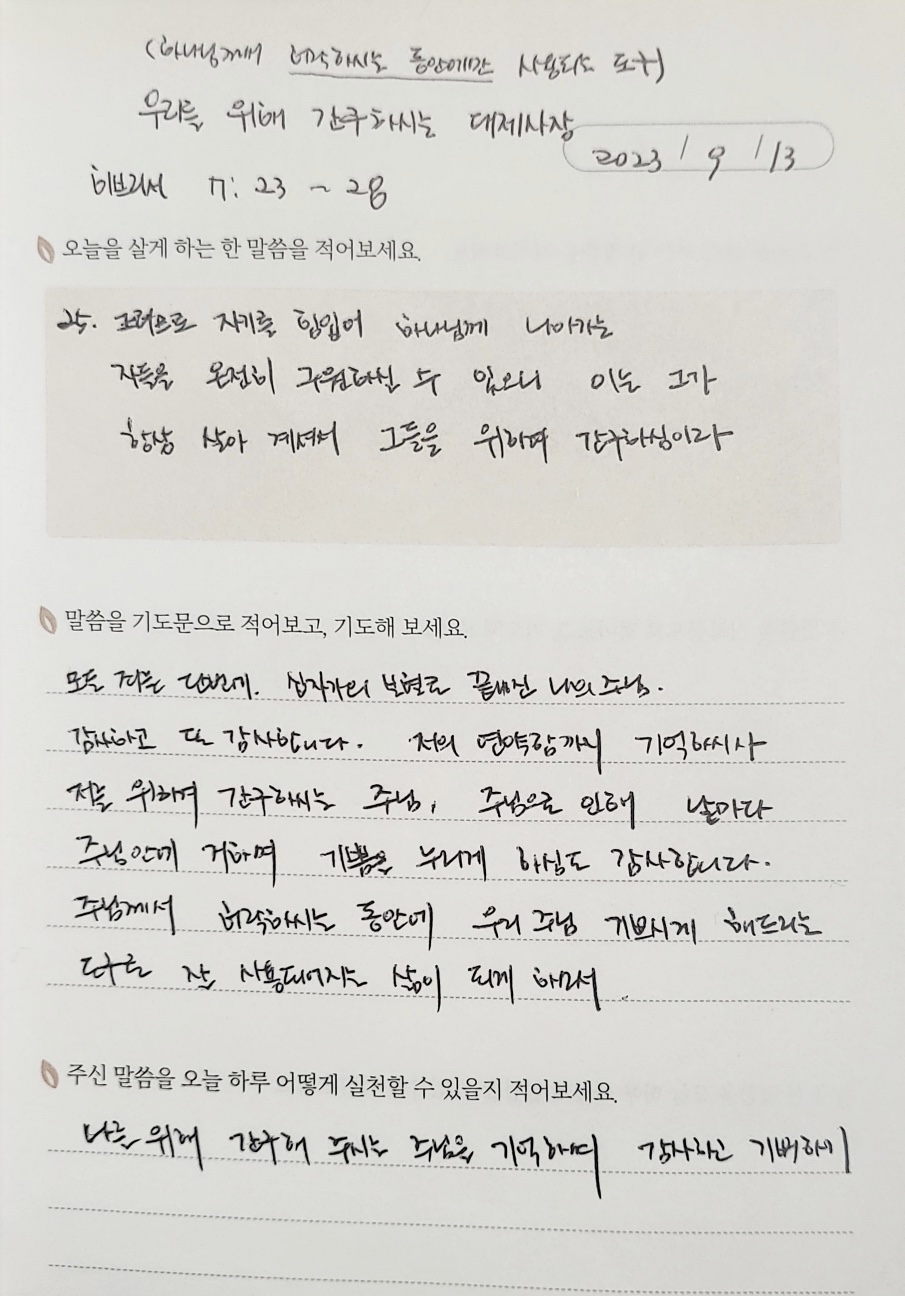 (하나님께서 허락하시는 동안에만 사용되는 도구)
우리를 위해 간구하시는 대제사장
2023 / 9 / 13
히브리서 7: 23 ~ 28
오늘을 살게 하는 한 말씀을 적어보세요.
25. 그러므로 자기를 힘입어 하나님께 나아가는
자들을 온전히 구원하실 수 있으니 이는 그가
항상 살아 계셔서 그들을 위하여 간구하심이라
말씀을 기도문으로 적어보고, 기도해 보세요.
모든 죄를 단번에. 십자가의 보혈로 끝내신 나의 주님.
감사하고 또 감사합니다. 저의 연약함까지 기억하시사
저를 위하여 간구하시는 주님, 주님으로 인해 날마다
주님안에 거하며 기쁨을 누리게 하심도 감사합니다.
주님께서 허락하시는 동안에 우리 주님 기쁘시게 해드리는
도구로 잘 사용되어지는 삶이 되게 하소서
주신 말씀을 오늘 하루 어떻게 실천할 수 있을지 적어보세요.
나를 위해 간구해 주시는 주님을 기억하며 감사하고 기뻐하기